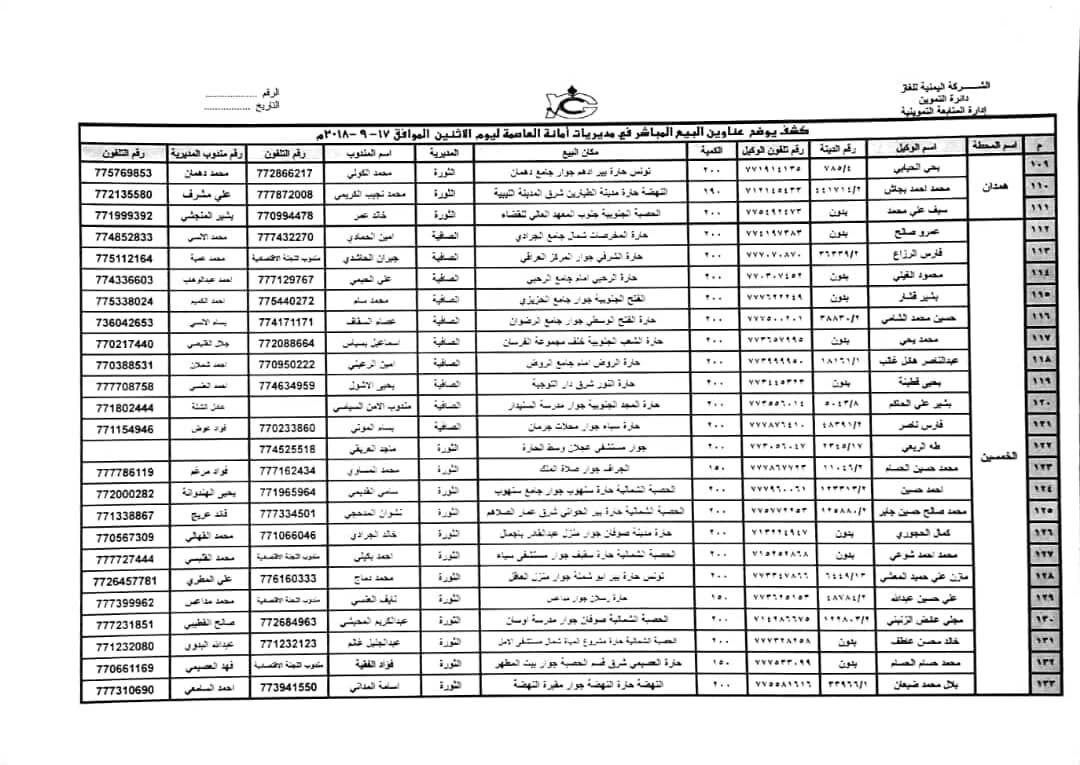 الشركة اليمنية للغاز
دائرة التموين
إدارة المتابعة التموينية
الرقم ....................
التاريخ ....................
كشف يوضح عناوين البيع المباشر في مديريات أمانة العاصمة ليوم الاثنين الموافق ١٧-٩-٢٠١٨م
م اسم المحطة اسم الوكيل رقم الدينة رقم تلفون الوكيل الكمية مكان البيع المديرية اسم المندوب رقم التلفون رقم مندوب المديرية رقم التلفون
١٠٩ همدان يحي الحبابي ٧٨٥/٤ ٧٧١٩١٤١٣٥ ٢٠٠ تونس حارة بير ادهم جوار جامع دهمان الثورة محمد الكولي 772866217 محمد دهمان 775769853
١١٠ محمد احمد بجاش ٤٤١٧١٤/٢ ٧١٢١٤٥٤٣٣ ١٩٠ النهضة حارة مدينة الطيارين شرق المدينة الليبية الثورة محمد نجيب الكريمي 777872008 علي مشرف 772135580
١١١ سيف علي محمد بدون ٧٧٥٤٩٢٤٧٣ ٢٠٠ الحصبة الجنوبية جنوب المعهد العالي للقضاء الثورة خالد عمر 770994478 بشير المنجشي 771999392
١١٢ الخمسين عمرو صالح بدون ٧٧٤١٩٧٣٨٣ ٢٠٠ حارة المخرصات شمال جامع الجرادي الصافية امين الحمادي 777432270 محمد الانسي 774852833
١١٣ فارس الرزاع ٣٦٣٣٩/٢ ٧٧٧٠٧٠٨٧٠ ٢٠٠ حارة الشرفي جوار المركز العراقي الصافية جبران الحاشدي مندوب اللجنة الاقتصادية محمد عمية 775112164
١١٤ محمود القيني بدون ٧٧٠٣٠٧٤٥٢ ٢٠٠ حارة الرحبي امام جامع الرحبي الصافية علي الحيمي 777129767 احمد عبدالوهاب 774336603
١١٥ بشير قشار بدون ٧٧٧٦٢٢٢٤٩ ٢٠٠ الفتح الجنوبية جوار جامع الحزيزي الصافية محمد سام 775440272 احمد الكميم 775338024
١١٦ حسين محمد الشامي ٣٨٨٣٠/٢ ٧٧٧٥٠٠٢٠١ ٢٠٠ حارة الفتح الوسطي جوار جامع الرضوان الصافية عصام السقاف 774171171 بسام الانسي 736042653
١١٧ محمد يحي بدون ٧٧٣٦٥٧١٩٥ ٢٠٠ حارة الشعب الجنوبية خلف مجموعة الفرسان الصافية اسماعيل بسباس 772088664 جلال القليصي 770217440
١١٨ عبدالناصر هائل غالب ١٨١٦١/١ ٧٧٣٩٩٩٩٥٠ ٢٠٠ حارة الروض امام جامع الروض الصافية امين الرعيني 770950222 احمد شملان 770388531
١١٩ يحيى قطينة بدون ٧٧٣٤٤٥٣٢٣ ٢٠٠ حارة النور شرق دار التوجية الصافية يحيى الاشول 774634959 احمد العنسي 777708758
١٢٠ بشير علي الحاكم ٥٠٤٣/٨ ٧٧٣٥٥٦٠١٤ ٢٠٠ حارة المجد الجنوبية جوار مدرسة السنيدار الصافية مندوب الامن السياسي 771802444
١٢١ فارس ناصر ٤٨٣٩١/٢ ٧٧٧٨٧٦٤١٠ ٢٠٠ حارة سباء جوار محلات جرمان الصافية بسام الموتي 770233860 فؤاد عوض 771154946
١٢٢ طه الريعي ٢٣٤٥/١٧ ٧٧٣٠٥٦٠٤٧ ٢٠٠ جوار مستشفى عجلان وسط الحارة الثورة ماجد العريقي 774525518
١٢٣ محمد حسين الحسام ١١٠٤٦/٢ ٧٧٧٨٦٧٧٢٣ ١٥٠ الجراف جوار صلاة الملك الثورة محمد المساوي 777162434 فؤاد مرغم 777786119
١٢٤ احمد حسين ١٢٣٣١٣/٢ ٧٧٧٩٦٠٠٦١ ٢٠٠ الحصبة الشمالية حارة سنهوب جوار جامع سنهوب الثورة سامي القديمي 771965964 يحيى الهندوانة 772000282
١٢٥ محمد صالح حسين جابر ١٢٥٨٨٠/٢ ٧٧٥٧٧٢٢٥٣ ٢٠٠ الحصبة الشمالية حارة بير الحواتي شرق عمار الصلاهم الثورة نشوان المدحجي 777334501 قائد عريج 771338867
١٢٦ كمال الحجوري بدون ٧١٣٢٢٤٩٤٧ ٢٠٠ حارة مدينة صوفان جوار منزل عبدالقادر باجمال الثورة خالد الجرادي 771066046 محمد القهالي 770567309
١٢٧ محمد احمد شوعي بدون ٧١٥٢٥٢٨٦٨ ٢٠٠ الحصبة الشمالية حارة سقيف جوار مستشفى سباء الثورة احمد بكيلي مندوب اللجنة الاقتصادية محمد القليسي 777727444
١٢٨ مازن علي حميد المعشي ٦٤٤٩/١٣ ٧٧٣٣٤٧٨٦٦ ٢٠٠ تونس حارة بير ابو شملة جوار منزل العاقل الثورة محمد دماج 776160333 علي المطري 7726457781
١٢٩ علي حسين عبدالله ٤٨٧٨٤/٢ ٧٧٣٦٢٥١٥٣ ١٥٠ حارة رسلان جوار مداعس الثورة نايف العنسي مندوب اللجنة الاقتصادية محمد مداعس 777399962
١٣٠ مجلي عائض الزنيني ١٢٢٨٠٣/٢ ٧١٤٢٨٦٦٧٥ ٢٠٠ الحصبة الشمالية صوفان جوار مدرسة اوسان الثورة عبدالكريم المحبشي 772684963 صالح القطيبي 777231851
١٣١ خالد محسن عاطف بدون ٧٧٧٣٢٨٢٥٨ ٢٠٠ الحصبة الشمالية حارة مشروع المياة شمال مستشفى الامل الثورة عبدالجليل غانم 771232123 عبدالله البدوي 771232080
١٣٢ محمد حسام الحسام بدون ٧٧٧٥٣٣٠٩٩ ١٥٠ حارة العصيمي شرق قسم الحصبة جوار بيت المطهر الثورة فؤاد الفقية مندوب اللجنة الاقتصادية فهد العصيمي 770661169
١٣٣ بلال محمد ضبعان ٣٣٩٦٦/١ ٧٧٥٥٨١٦١٦ ٢٠٠ النهضة حارة النهضة جوار مقبرة النهضة الثورة اسامة المداني 773941550 احمد السامعي 777310690